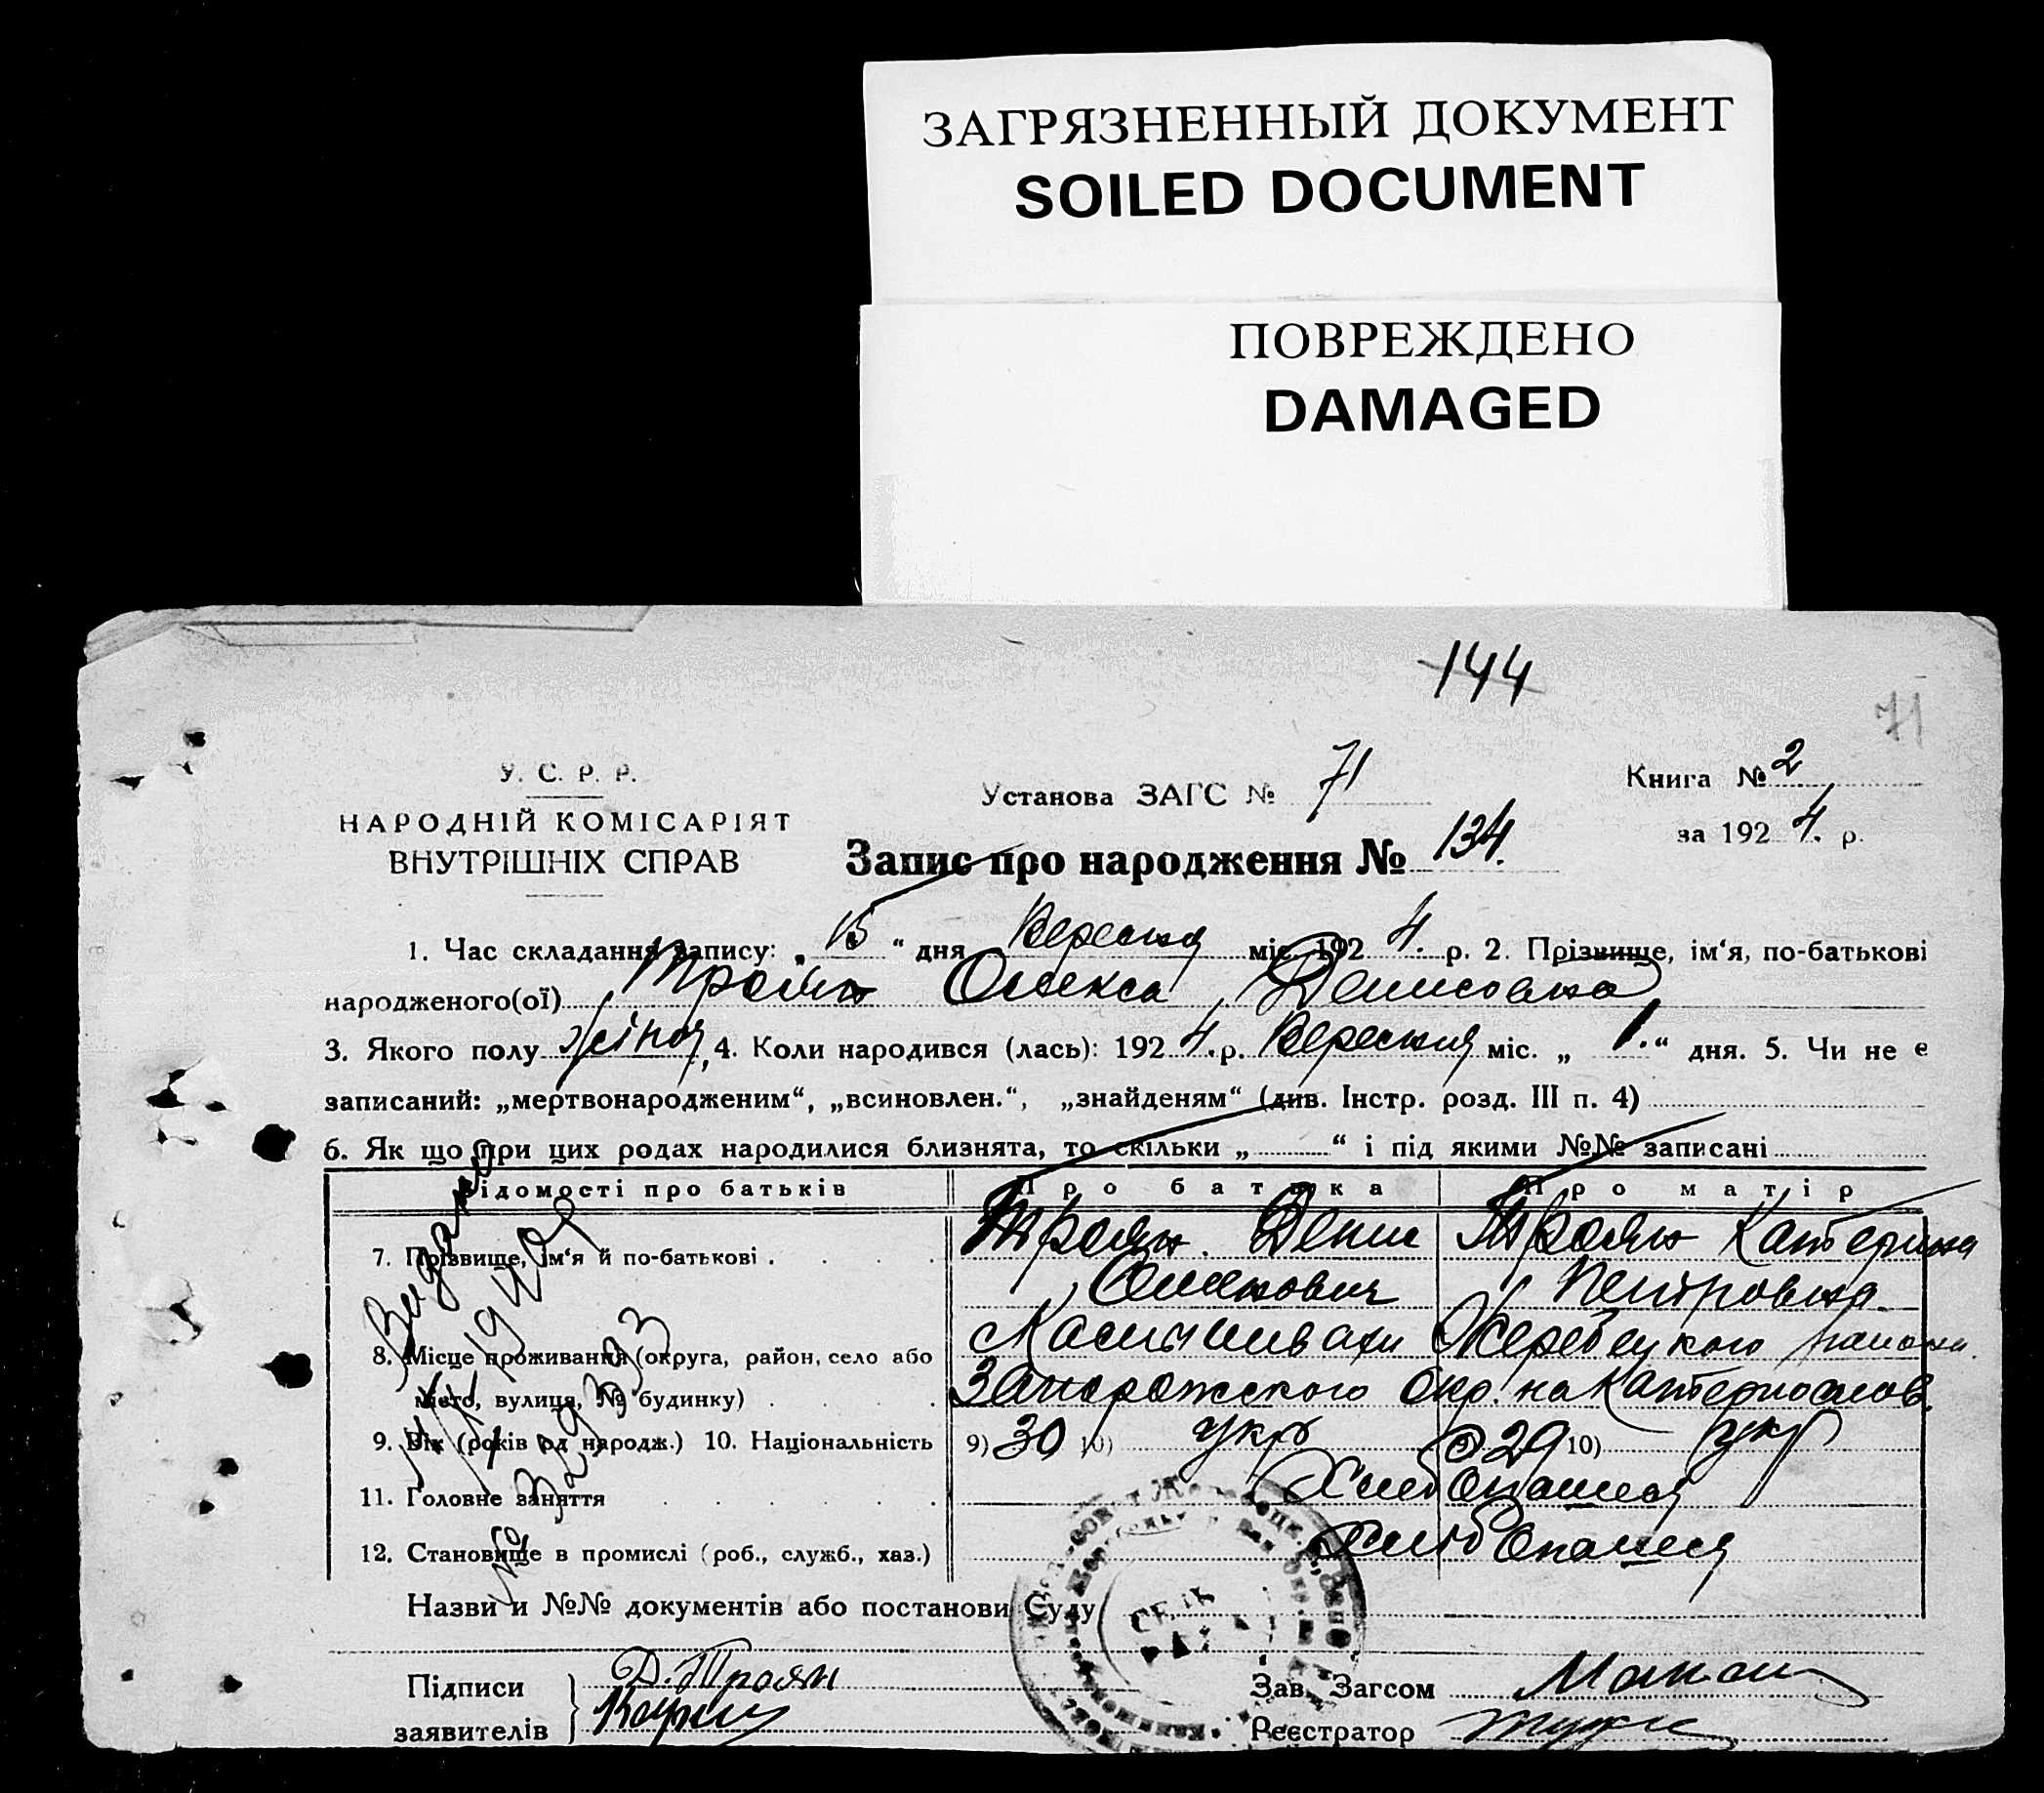 ЗАГРЯЗНЕННЫЙ ДОКУМЕНТ
SOILED DOCUMENT
ПОВРЕЖДЕНО
DAMAGED
144
71
У. С. Р. Р.
НАРОДНІЙ КОМІСАРІЯТ
ВНУТРІШНІХ СПРАВ
Установа ЗАГС № 71
Книга № 2
за 1924. р.
Запис про народження № 134.
1. Час складання запису: „15“ дня Вересня міс. 1924. р. 2. Прізвище, ім‘я, по-батькові
народженого(ої) Троян Олекса Денисовна
3. Якого полу жіноч, 4. Коли народився (лась): 1924. р. Вересня міс. „1.“ дня. 5. Чи не є
записаний: „мертвонародженим“, „всиновлен.“, „знайденям“ (див. Інстр. розд. III п. 4)
6. Як що при цих родах народилися близнята, то скільки „ “ і під якими №№ записані
Відомості про батьків Про батька Про матір
7. Прізвище, ім‘я й по-батькові Троян Денис Троян Катерина
Петровна
8. Місце проживання (округа, район, село або
місто, вулиця, № будинку) Запорожского Окр. на Катеринослав.
9. Вік (років од народж.) 10. Національність 9) 30 10) укр 29 10) укр
11. Головне заняття
12. Становище в промислі (роб., служб., хаз.)
Видан
№ 329333
Назви и №№ документів або постанови Суду
Підписи
заявителів
Д. Троян
Зав. Загсом
Реєстратор